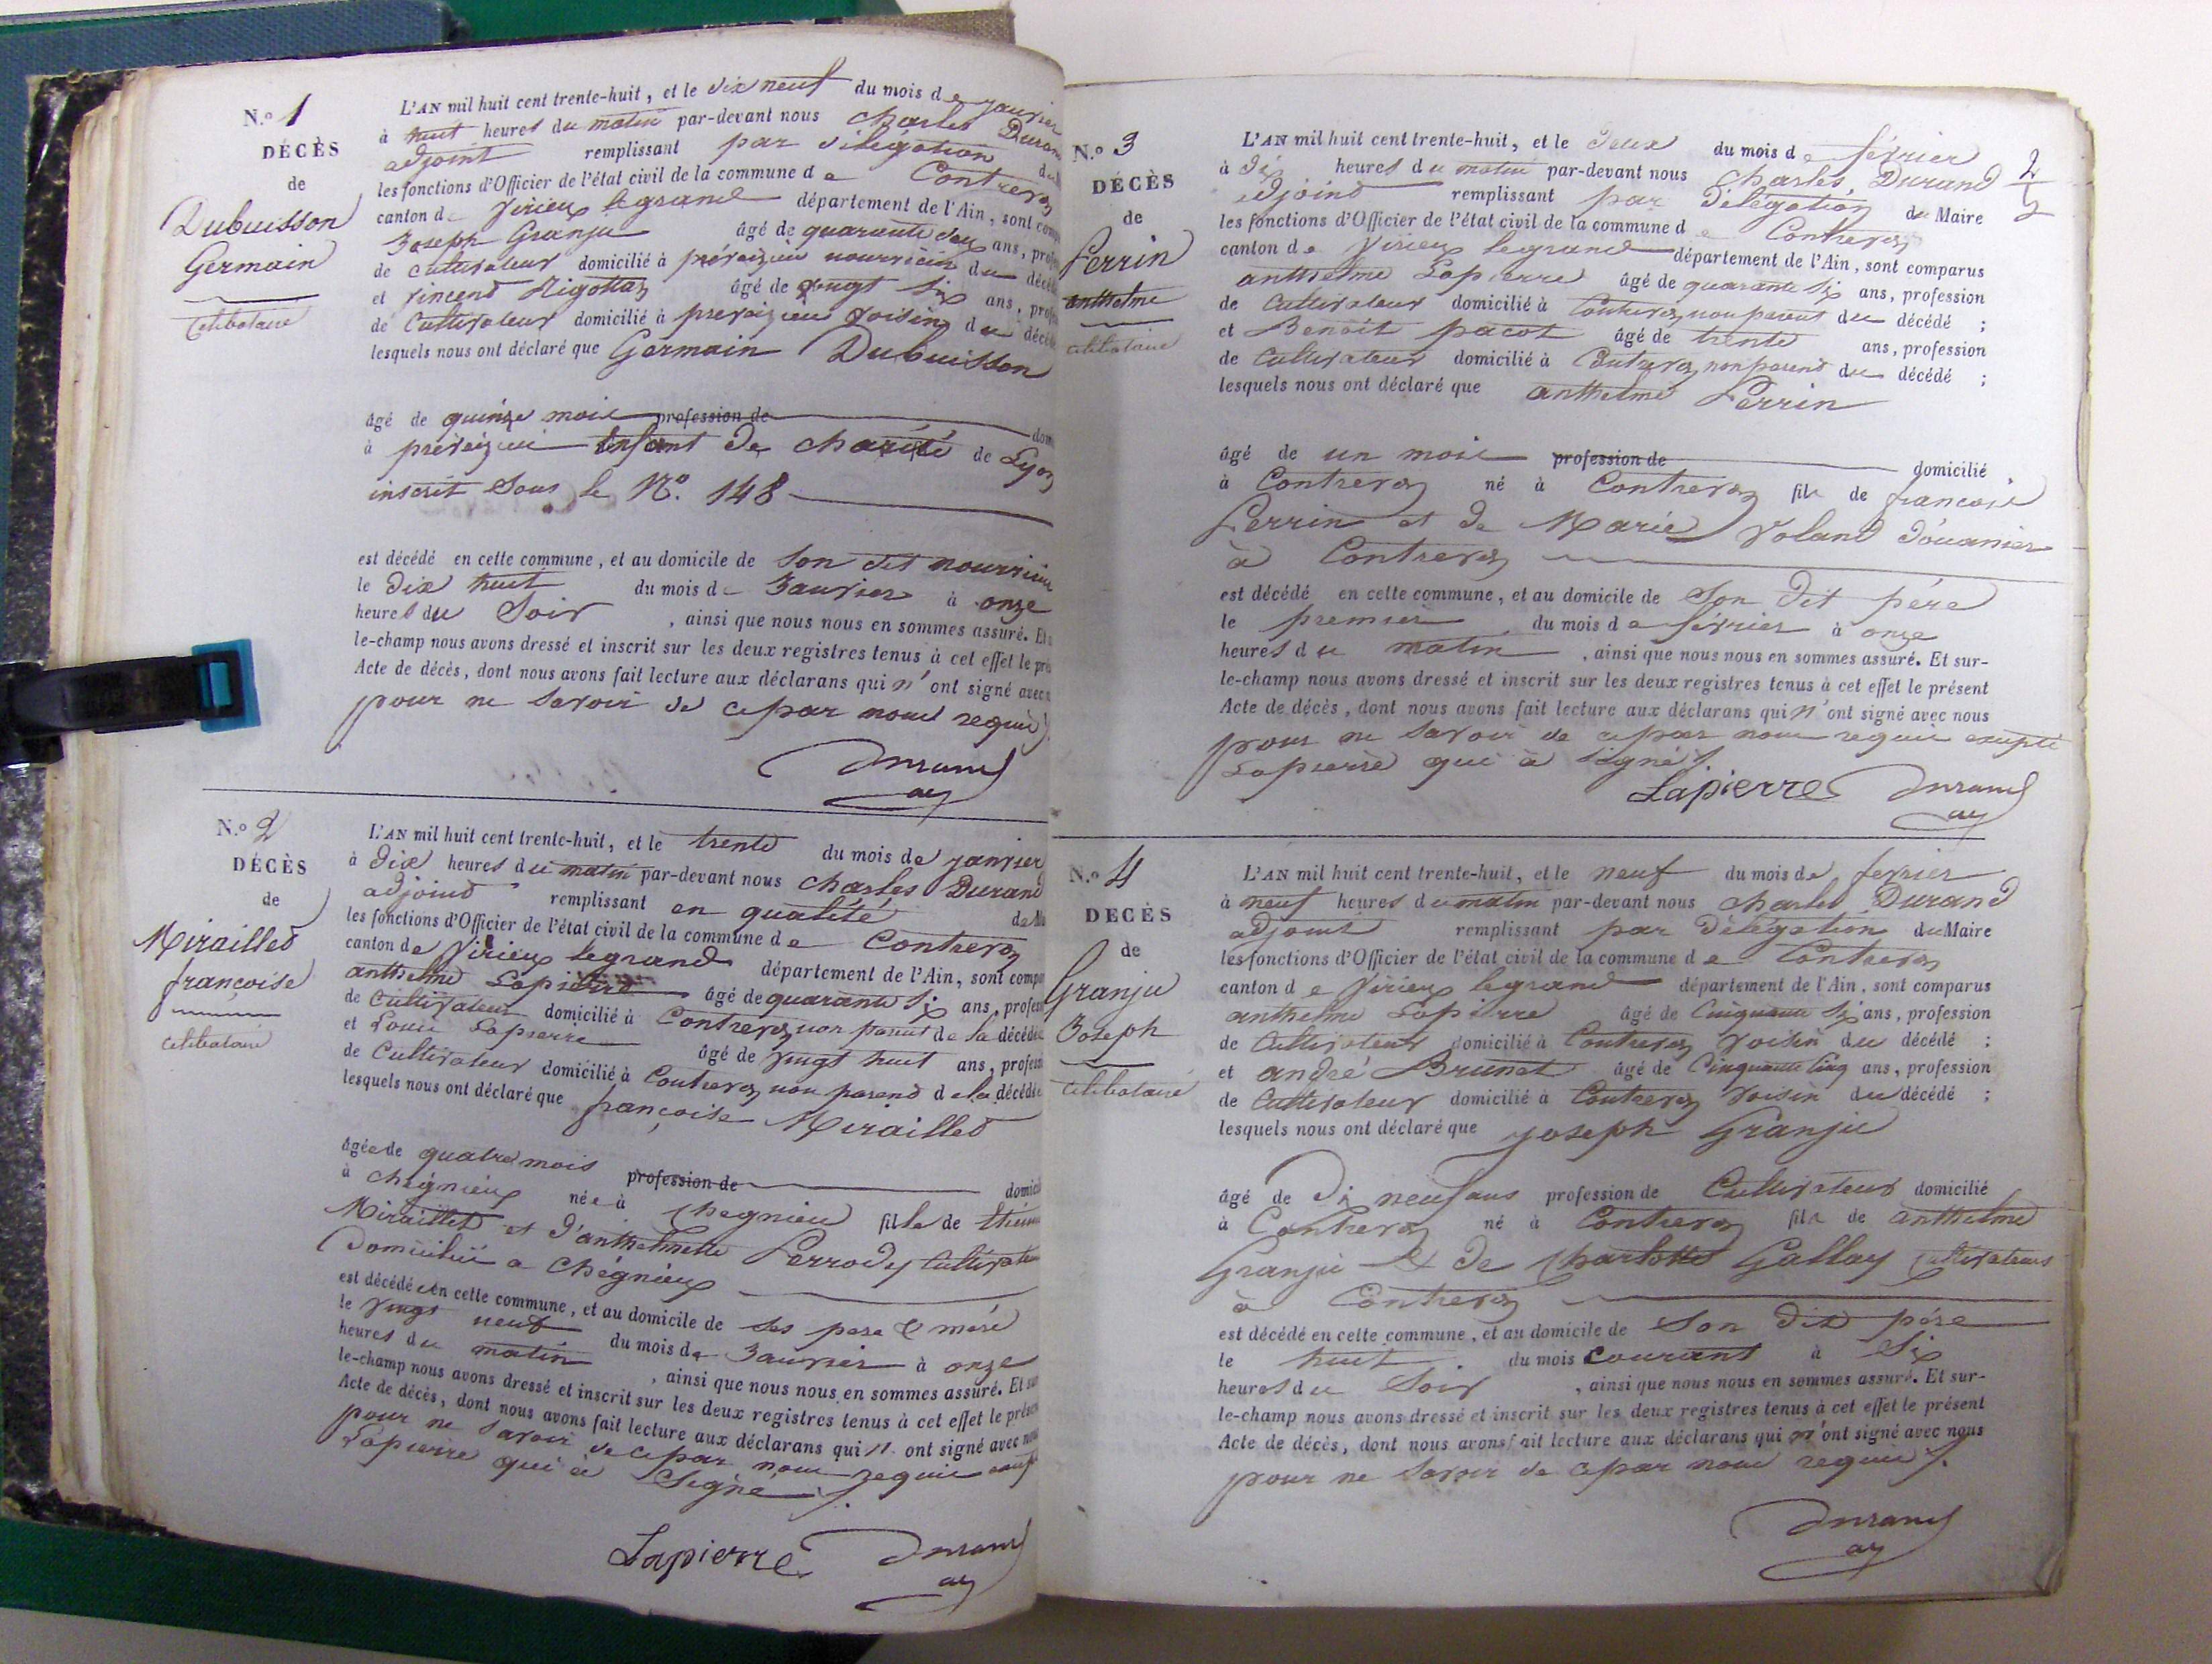 N.o 1
DÉCÈS
de
Dubuisson
Germain
celibataire
L'AN mil huit cent trente-huit, et le dix neuf du mois de janvier
à huit heures du matin par-devant nous Charles Durand
adjoint remplissant par délégation
les fonctions d'Officier de l'état civil de la commune de Contrevoz
canton de Virieux legrand département de l'Ain, sont
Joseph Granju âgé de quarante ans,
de cultivateur domicilié à nourricier du
et Vincend Rigottaz âgé de vingt six ans,
de Cultivateur domicilié à voisin du
lesquels nous ont déclaré que Germain Dubuisson
âgé de quinze mois profession de
à Enfant de charité de Lyon
inscrit sous le No. 148
est décédé en cette commune, et au domicile de son dit nourricier
le dix huit du mois de Janvier à onze
heures du Soir , ainsi que nous nous en sommes assuré. Et
le-champ nous avons dressé et inscrit sur les deux registres tenus à cet effet le
Acte de décès, dont nous avons fait lecture aux déclarans qui n'ont signé avec
pour ne savoir de ce par nous requis
Durand
ay
N.o 2
DÉCÈS
de
Miraillet
françoise
celibataire
L'AN mil huit cent trente-huit, et le trente du mois de janvier
à dix heures du matin par-devant nous Charles Durand
adjoind remplissant en qualité de
les fonctions d'Officier de l'état civil de la commune de Contrevoz
canton de Virieux legrand département de l'Ain, sont
anthelme Lapierre âgé de quarante six ans,
de Cultivateur domicilié à Contrevoz non parent de la décédée
et Louis Lapierre âgé de vingt huit ans,
de Cultivateur domicilié à Contrevoz non parend de la décédée
lesquels nous ont déclaré que françoise Miraillet
âgée de quatre mois profession de
à Chégnieux née à Chegnieu fille de
Miraillet et d'anthelmette Perrody
Domicilié a Chégnieux
est décédée en cette commune, et au domicile de ses pere & mère
le vingt neuf du mois de Janvier à onze
heures du matin , ainsi que nous nous en sommes assuré. Et
le-champ nous avons dressé et inscrit sur les deux registres tenus à cet effet le
Acte de décès, dont nous avons fait lecture aux déclarans qui n'ont signé avec
pour ne savoir de ce par nous requis
Lapierre qui à Signé
Lapierre Durand
ay
N.o 3
DÉCÈS
de
Perrin
anthelme
celibataire
L'AN mil huit cent trente-huit, et le deux du mois de février
à dix heures du matin par-devant nous Charles Durand
adjoind remplissant par délégation du Maire
les fonctions d'Officier de l'état civil de la commune de Contrevoz
canton de Virieux legrand département de l'Ain, sont comparus
anthelme Lapierre âgé de quarante six ans, profession
de Cultivateur domicilié à Contrevoz non parent du décédé ;
et Benoit pacot âgé de trente ans, profession
de Cultivateur domicilié à Contrevoz non parend du décédé ;
lesquels nous ont déclaré que anthelme Perrin
âgé de un mois profession de domicilié
à Contrevoz né à Contrevoz fils de françois
Perrin et de Marie Voland douanier
à Contrevoz
est décédé en cette commune, et au domicile de son dit père
le premier du mois de février à onze
heures du matin , ainsi que nous nous en sommes assuré. Et sur-
le-champ nous avons dressé et inscrit sur les deux registres tenus à cet effet le présent
Acte de décès, dont nous avons fait lecture aux déclarans qui n'ont signé avec nous
pour ne savoir de ce par nous requis excepté
Lapierre qui à signé
Lapierre Durand
ay
N.o 4
DECÈS
de
Granju
Joseph
celibataire
L'AN mil huit cent trente-huit, et le neuf du mois de fevrier
à neuf heures du matin par-devant nous Charles Durand
adjoint remplissant par délégation du Maire
les fonctions d'Officier de l'état civil de la commune de Contrevoz
canton de Virieux legrand département de l'Ain, sont comparus
anthelme Lapierre âgé de Cinquante six ans, profession
de Cultivateur domicilié à Contrevoz voisin du décédé ;
et andré Brunet âgé de Cinquante Cinq ans, profession
de Cultivateur domicilié à Contrevoz voisin du décédé ;
lesquels nous ont déclaré que joseph Granju
âgé de dix neuf ans profession de Cultivateur domicilié
à Contrevoz né à Contrevoz fils de anthelme
Granju & de Charlotte Gallay Cultivateurs
à Contrevoz
est décédé en cette commune, et au domicile de son dit père
le huit du mois courant à Six
heures du Soir , ainsi que nous nous en sommes assuré. Et sur-
le-champ nous avons dressé et inscrit sur les deux registres tenus à cet effet le présent
Acte de décès, dont nous avons fait lecture aux déclarans qui n'ont signé avec nous
pour ne savoir de ce par nous requis
Durand
ay